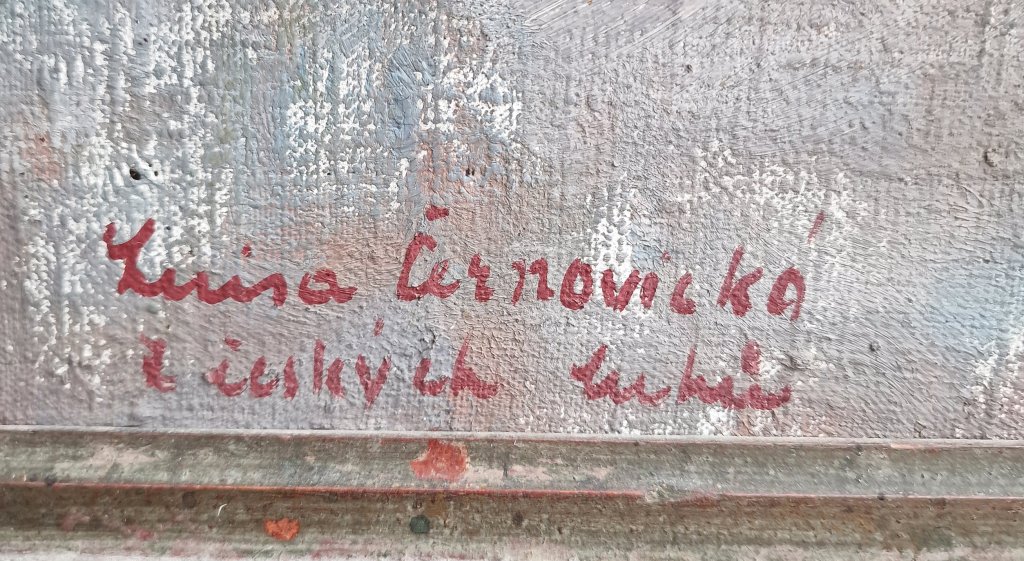 Luisa Černovická
z českých luhů